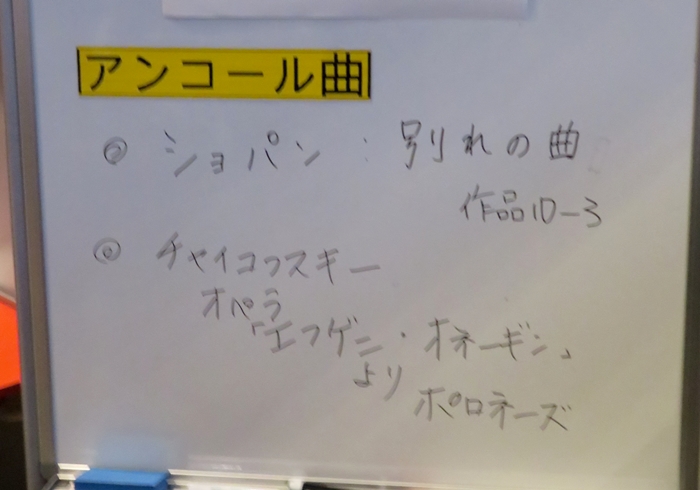 アンコール曲
◎ ショパン : 別れの曲
作品10-3
◎ チャイコフスキー
オペラ
「エフゲニ・オネーギン」
より
ポロネーズ